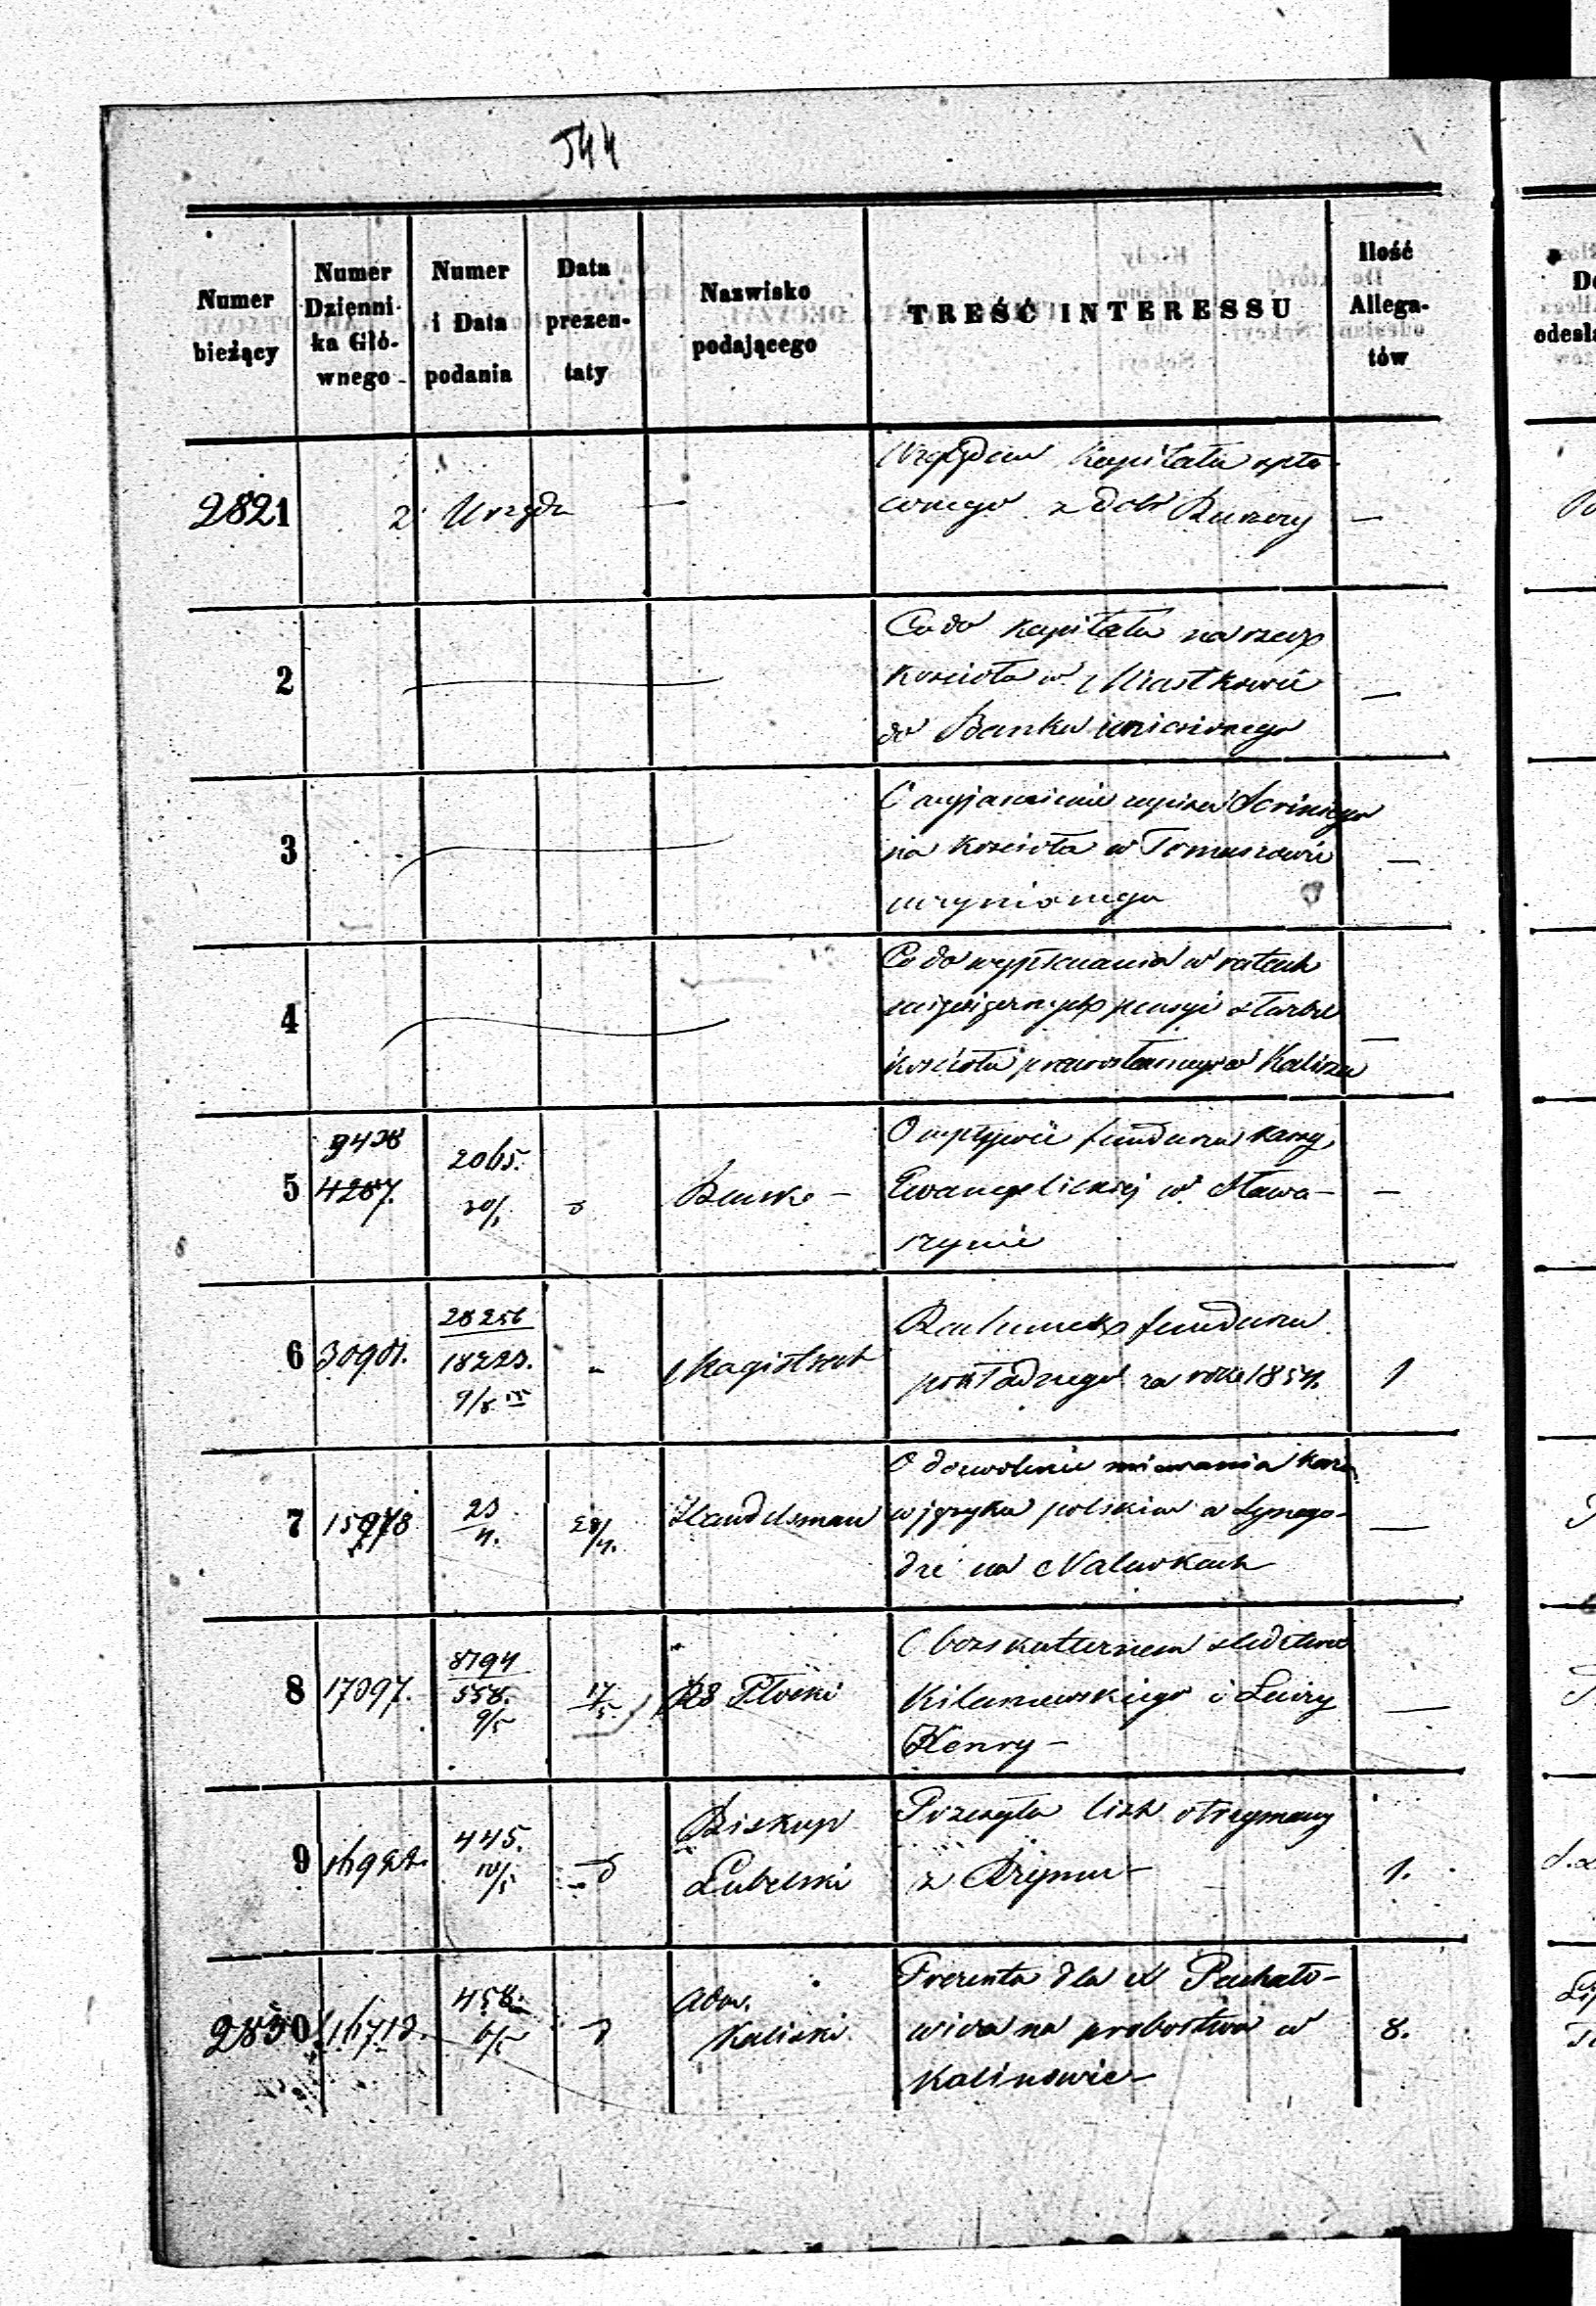 544
Numer bieżący
Numer Dzienni- ka Głó- wnego
Numer i Data podania
Data prezen- taty
Nazwisko podającego
TREŚĆ INTERESSU
Ilość Allega- tów
2821
z Urzędu —
Względem Kapitału spła-
conego z dóbr
—
2
Co do kapitału na rzecz
kościoła w Miastkowie
do Banku wniesionego
—
3
O wyjaśnienie zapisu
na kościoła w Tomaszowie
uczynionego
—
4
Co do wypłacania w ratach
pensyi
kościoła prawosławnego w Kaliszu
—
5
9438
4287.
2065.
30/1
Bank —
O wpływie funduszu kassy
Ewangelickiej w Stawi-
szynie
—
6
30901.
28256
18223.
9/8
Magistrat
Rachunek funduszu
pokładnego za rok 1854.
1
7
15978
23
4.
28/4.
Handelsman
O dozwolenie miewania kazań
w języku polskim w Synago-
dze na Nalewkach
—
8
17097.
8794
558.
9/5
17/5
RG Płocki
O bezskutecznem śledztwie
Kilanowskiego i Luizy
Henry —
—
9
445.
10/5
Biskup
Lubelski
Przesyła list otrzymany
z Rzymu —
1.
2830
16713.
458.
6/5
Adm.
Kaliski
Prezenta dla X Pachało-
wicza na probostwo w
Kalinowie —
8.